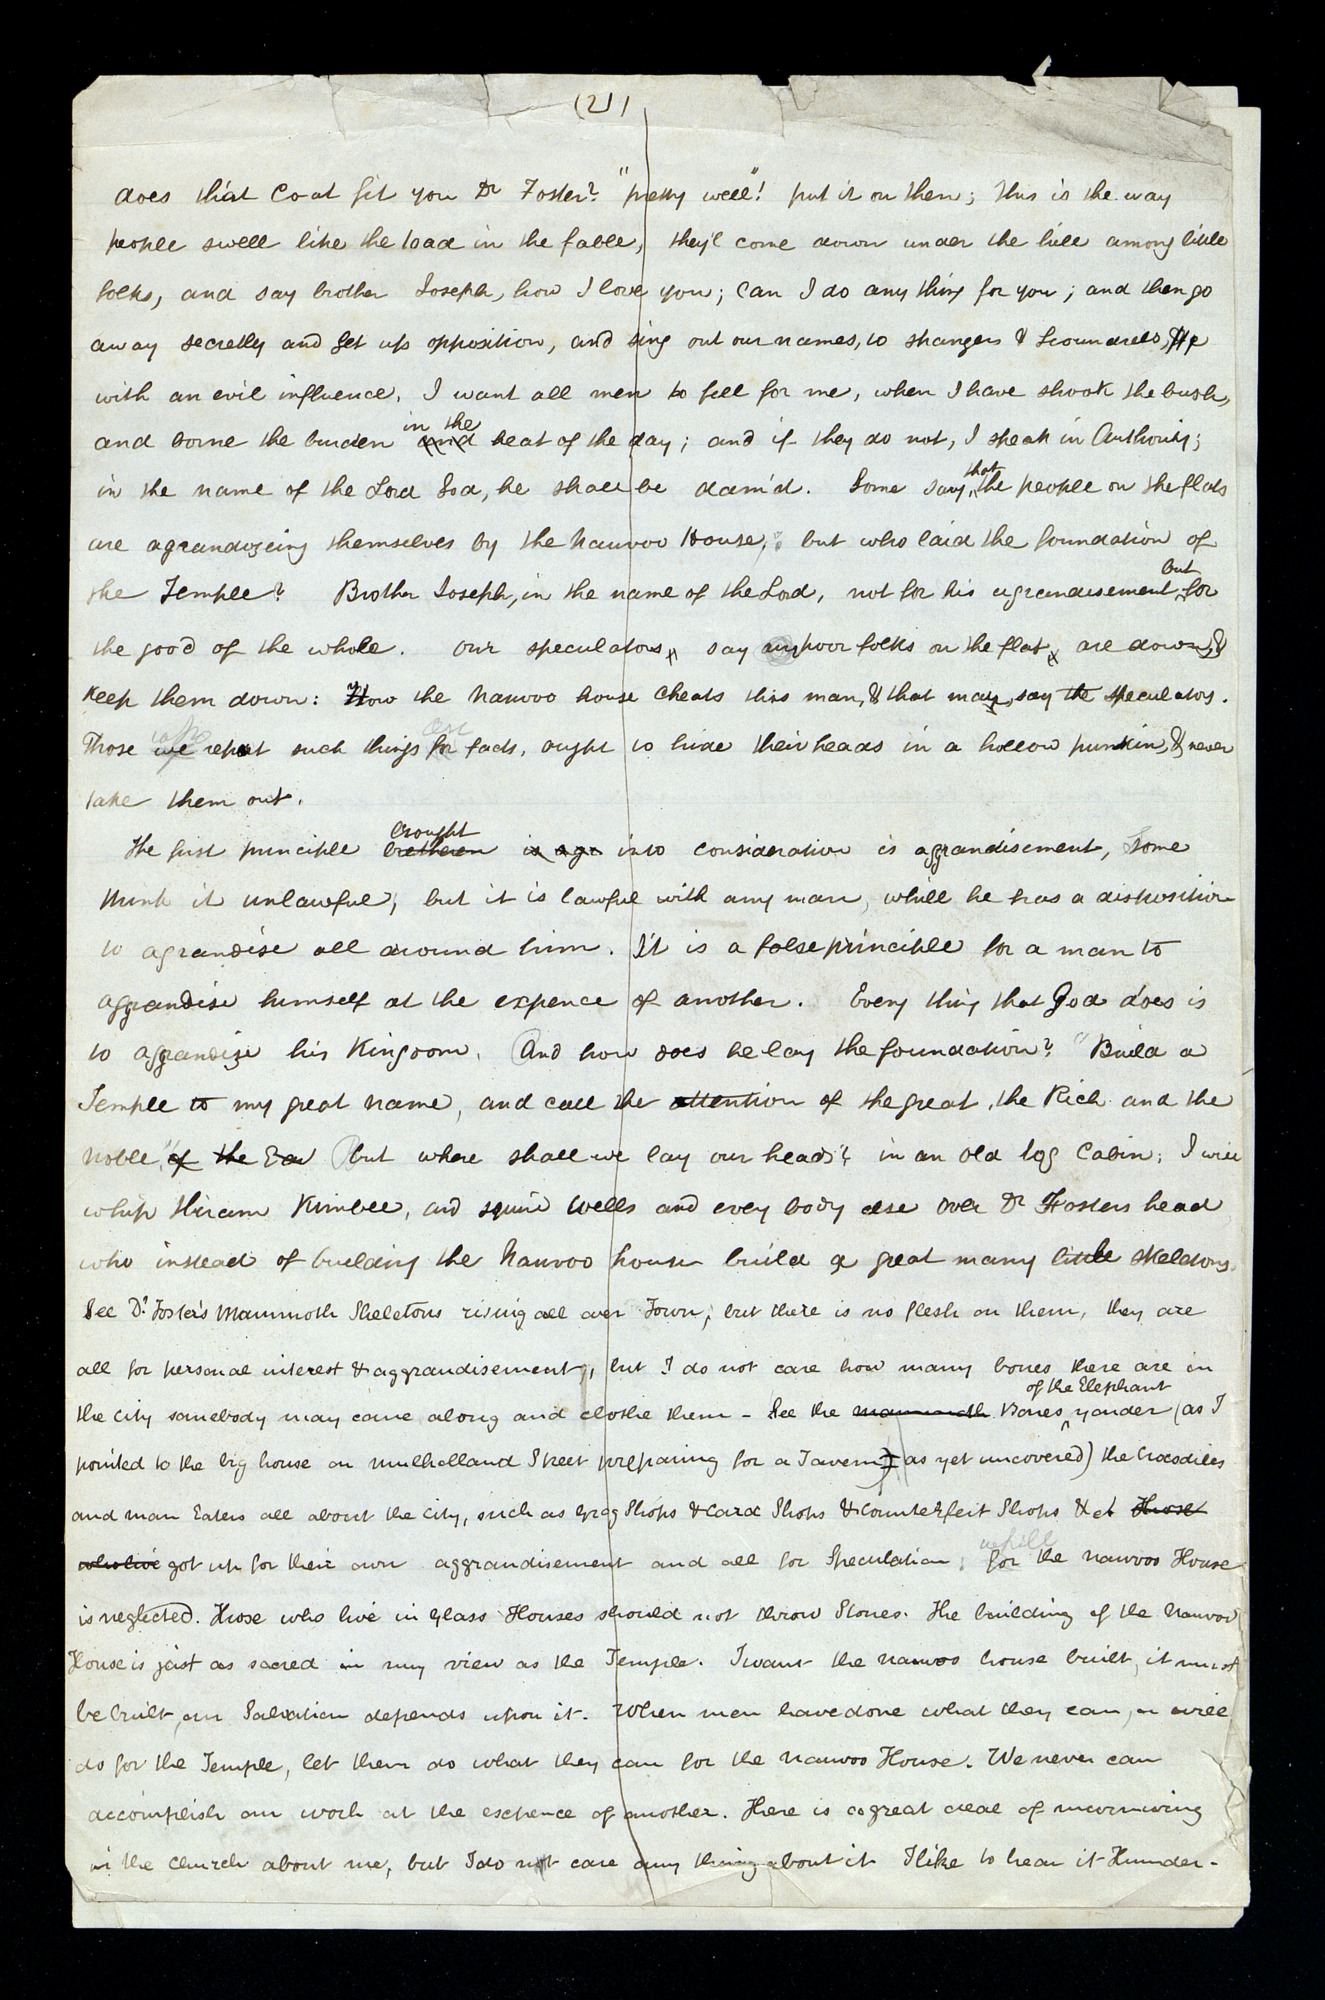 (2)
does that Coat fit you Dr Foster? "pretty well"! put it on then; this is the way
people swell like the toad in the fable, they'l come down under the hill among little
folks, and say brother Joseph, how I love you; Can I do any thing for you; and then go
away secretly and get up opposition, and sing out our names, to strangers & scoundrels,
with an evil influence. I want all men to fell for me, when I have shook the bush,
and borne the burden in the and heat of the day; and if they do not, I speak in Authority;
in the name of the Lord God, he shall be damn'd. Some say, that the people on the flats
are agrandizeing themselves by the Nauvoo House, but who laid the foundation of
the Temple? Brother Joseph, in the name of the Lord, not for his agrandisement, but for
the good of the whole. Our speculators, say poor folks on the flat, are down, &
keep them down: How the Nauvoo house cheats this man, & that man, say the speculators.
Those we report such things for facts, ought to hide their heads in a hollow punkin, & never
take them out.
The first principle brought bretheren is agr into consideration is aggrandisement, Some
think it unlawful; but it is lawful with any man, while he has a disposition
to agrandise all around him. It is a false principle for a man to
aggrandise himself at the expence of another. Every thing that God does is
to aggrandize his Kingdom. And how does he lay the foundation? "Build a
Temple to my great name, and call the attention of the great, the Rich and the
noble," of the Ear but where shall we lay our heads? in an old log Cabin; I will
whip Hiram Kimbel, and squire Wells and every body else over Dr Fosters head
who instead of building the Nauvoo house build a great many little skeletons.
See Dr. Foster's Mammoth Skeletons rising all over Town; but there is no flesh on them, they are
all for personal interest & aggrandisement, but I do not care how many bones there are in
the city somebody may come along and clothe them – See the mammoth Bones of the Elephant yonder (as I
pointed to the big house on Mulholland Street preparing for a Tavern as yet uncovered) the Crocodiles
and man Eaters all about the City, such as Grog Shops & Card Shops & Counterfeit Shops &c. those
who live got up for their own aggrandisement and all for Speculation, while for the Nauvoo House
is neglected. Those who live in Glass Houses should not throw Stones. The building of the Nauvoo
House is just as sacred in my view as the Temple. I want the Nauvoo house built, it must
be built, our Salvation depends upon it. When men have done what they can, or will
do for the Temple, let them do what they can for the Nauvoo House. We never can
accomplish our work at the expence of another. There is a great deal of murmuring
in the Church about me, but I do not care any thing about it I like to hear it Thunder-